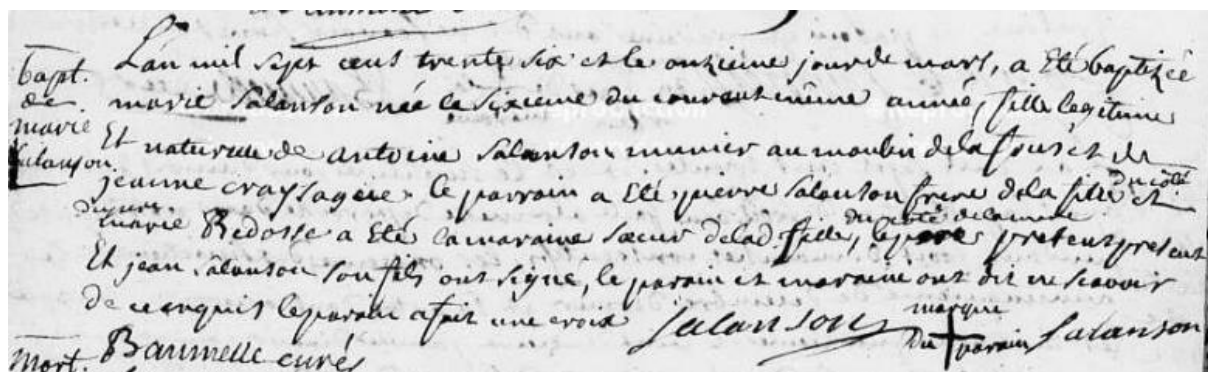 bapt.
de
marie
Salanson
L'an mil sept cens trente six et le onzieme jour de mars, a Eté baptizée
marie Salanson née le sixieme du courent même année, fille legitime
Et naturelle de antoine Salanson munier au moulin de la et de
jeanne crayssagere. le parrain a Eté pierre Salanson frere de la fille du coté
du pere et
marie Bedosse a Eté la maraine sœur delad. fille, du coté de la mere
le pere present present
Et jean Salanson son fils ont signé, le parain et maraine ont dit ne scavoir
de ce enquis le parain a fait une croix Salanson marque
du parain Salanson
mort. Baumelle curé